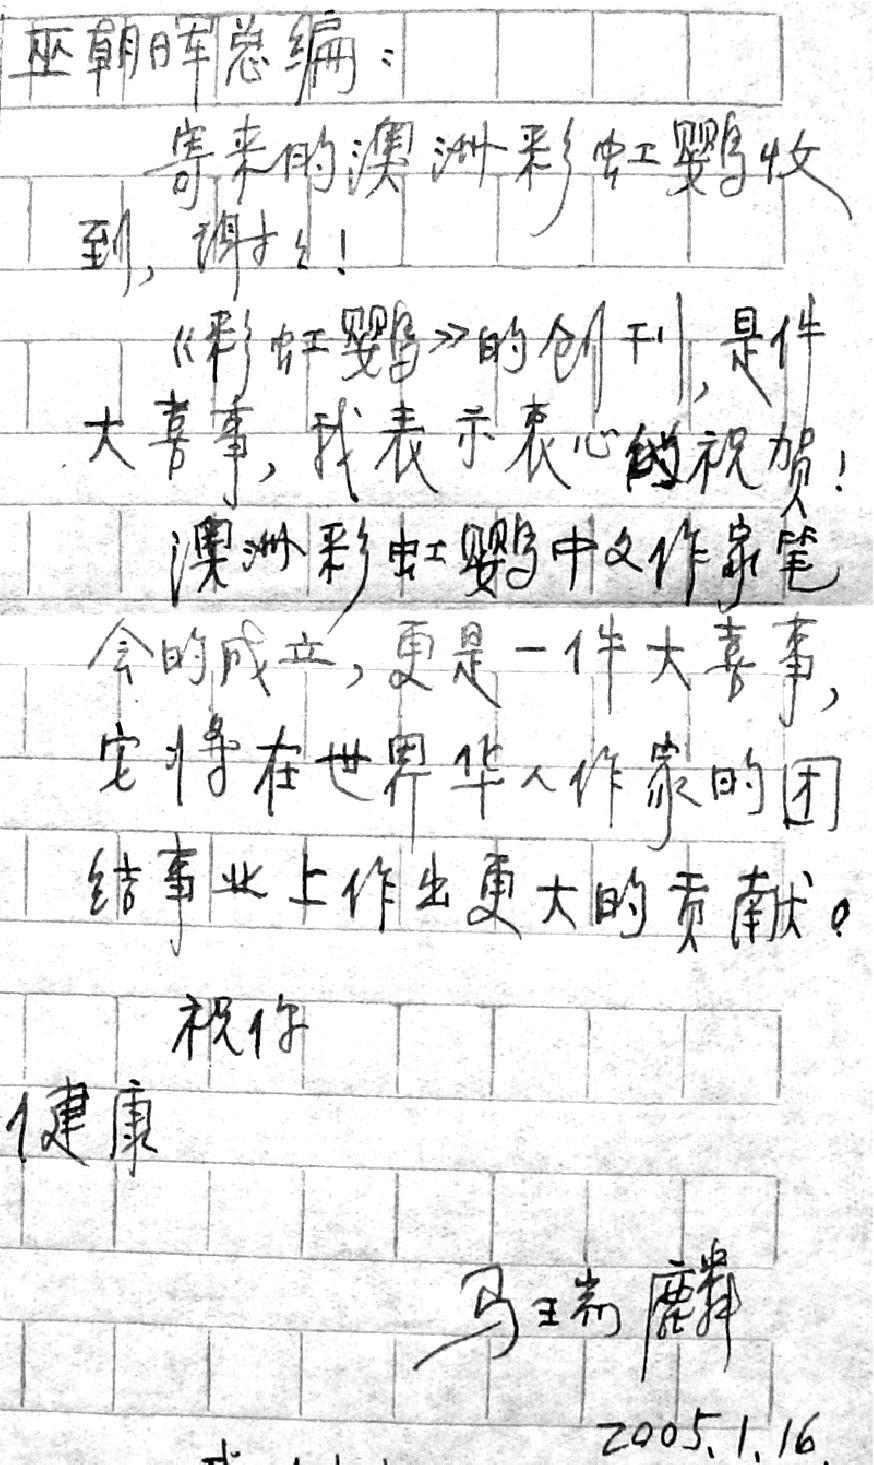 巫朝晖总编：
寄来的澳洲彩虹鹦收
到，谢谢！
《彩虹鹦》的创刊，是件
大喜事，我表示衷心的祝贺！
澳洲彩虹鹦中文作家笔
会的成立，更是一件大喜事，
它将在世界华人作家的团
结事业上作出更大的贡献。
祝你
健康
马瑞麟
2005.1.16.